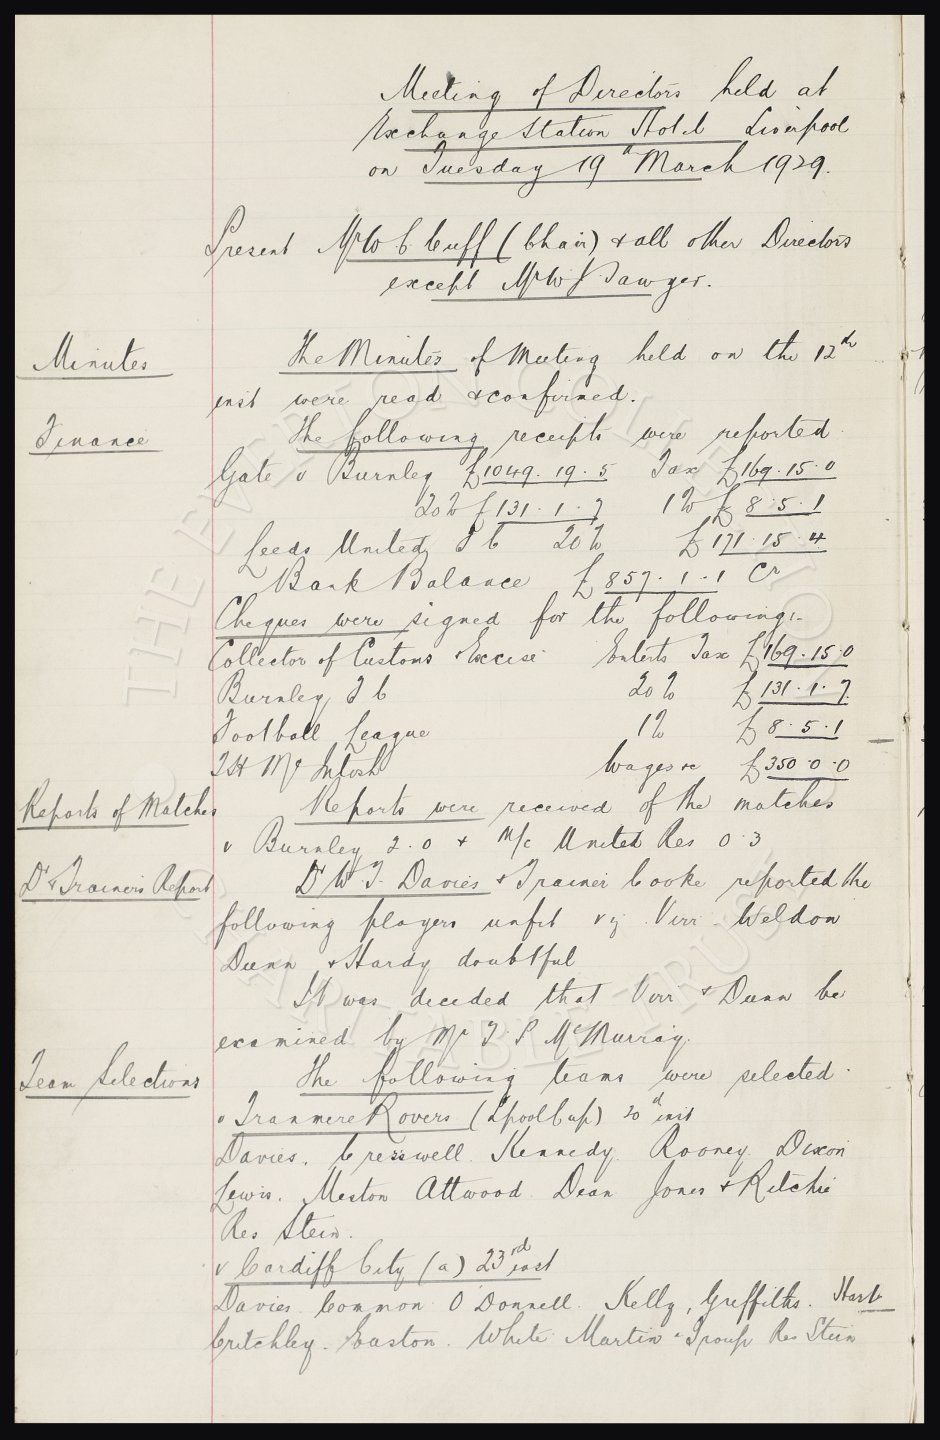 Meeting of Directors held at
Exchange Station Hotel Liverpool
on Tuesday 19th March 1929.
Present Mr W C Cuff (Chair) & all other Directors
except Mr W J Sawyer.
Minutes The Minutes of Meeting held on the 12th
inst were read & confirmed.
Finance The following receipts were reported
Gate v Burnley £1049. 19. 5 Tax £169. 15. 0
20% £131. 1. 7 1% £8. 5. 1
Leeds United F C 20% £171. 15. 4
Bank Balance £857. 1. 1 Cr
Cheques were signed for the following:-
Collector of Customs & Excise Enterts Tax £169. 15. 0
Burnley F C 20% £131. 1. 7
Football League 1% £8. 5. 1
T H McIntosh Wages &c £350. 0. 0
Reports of Matches Reports were received of the matches
v Burnley 2. 0 & M/c United Res 0. 3
Dr & Trainers Report Dr W. T. Davies & Trainer Cooke reported the
following players unfit viz. Virr. Weldon
Dunn & Hardy doubtful
It was decided that Virr & Dunn be
examined by Mr T. P. McMurray.
Team Selections The following teams were selected.
v Tranmere Rovers (Lpool Cup) 20th inst
Davies. Cresswell. Kennedy. Rooney. Dixon
Lewis. Meston Attwood. Dean Jones & Ritchie
Res Stein.
v Cardiff City (a) 23rd inst
Davies. Common. O'Donnell. Kelly, Griffiths. Hart
Critchley. Easton. White. Martin & Troup Res Stein
THE EVERTON COLLECTION
CHARITABLE TRUST